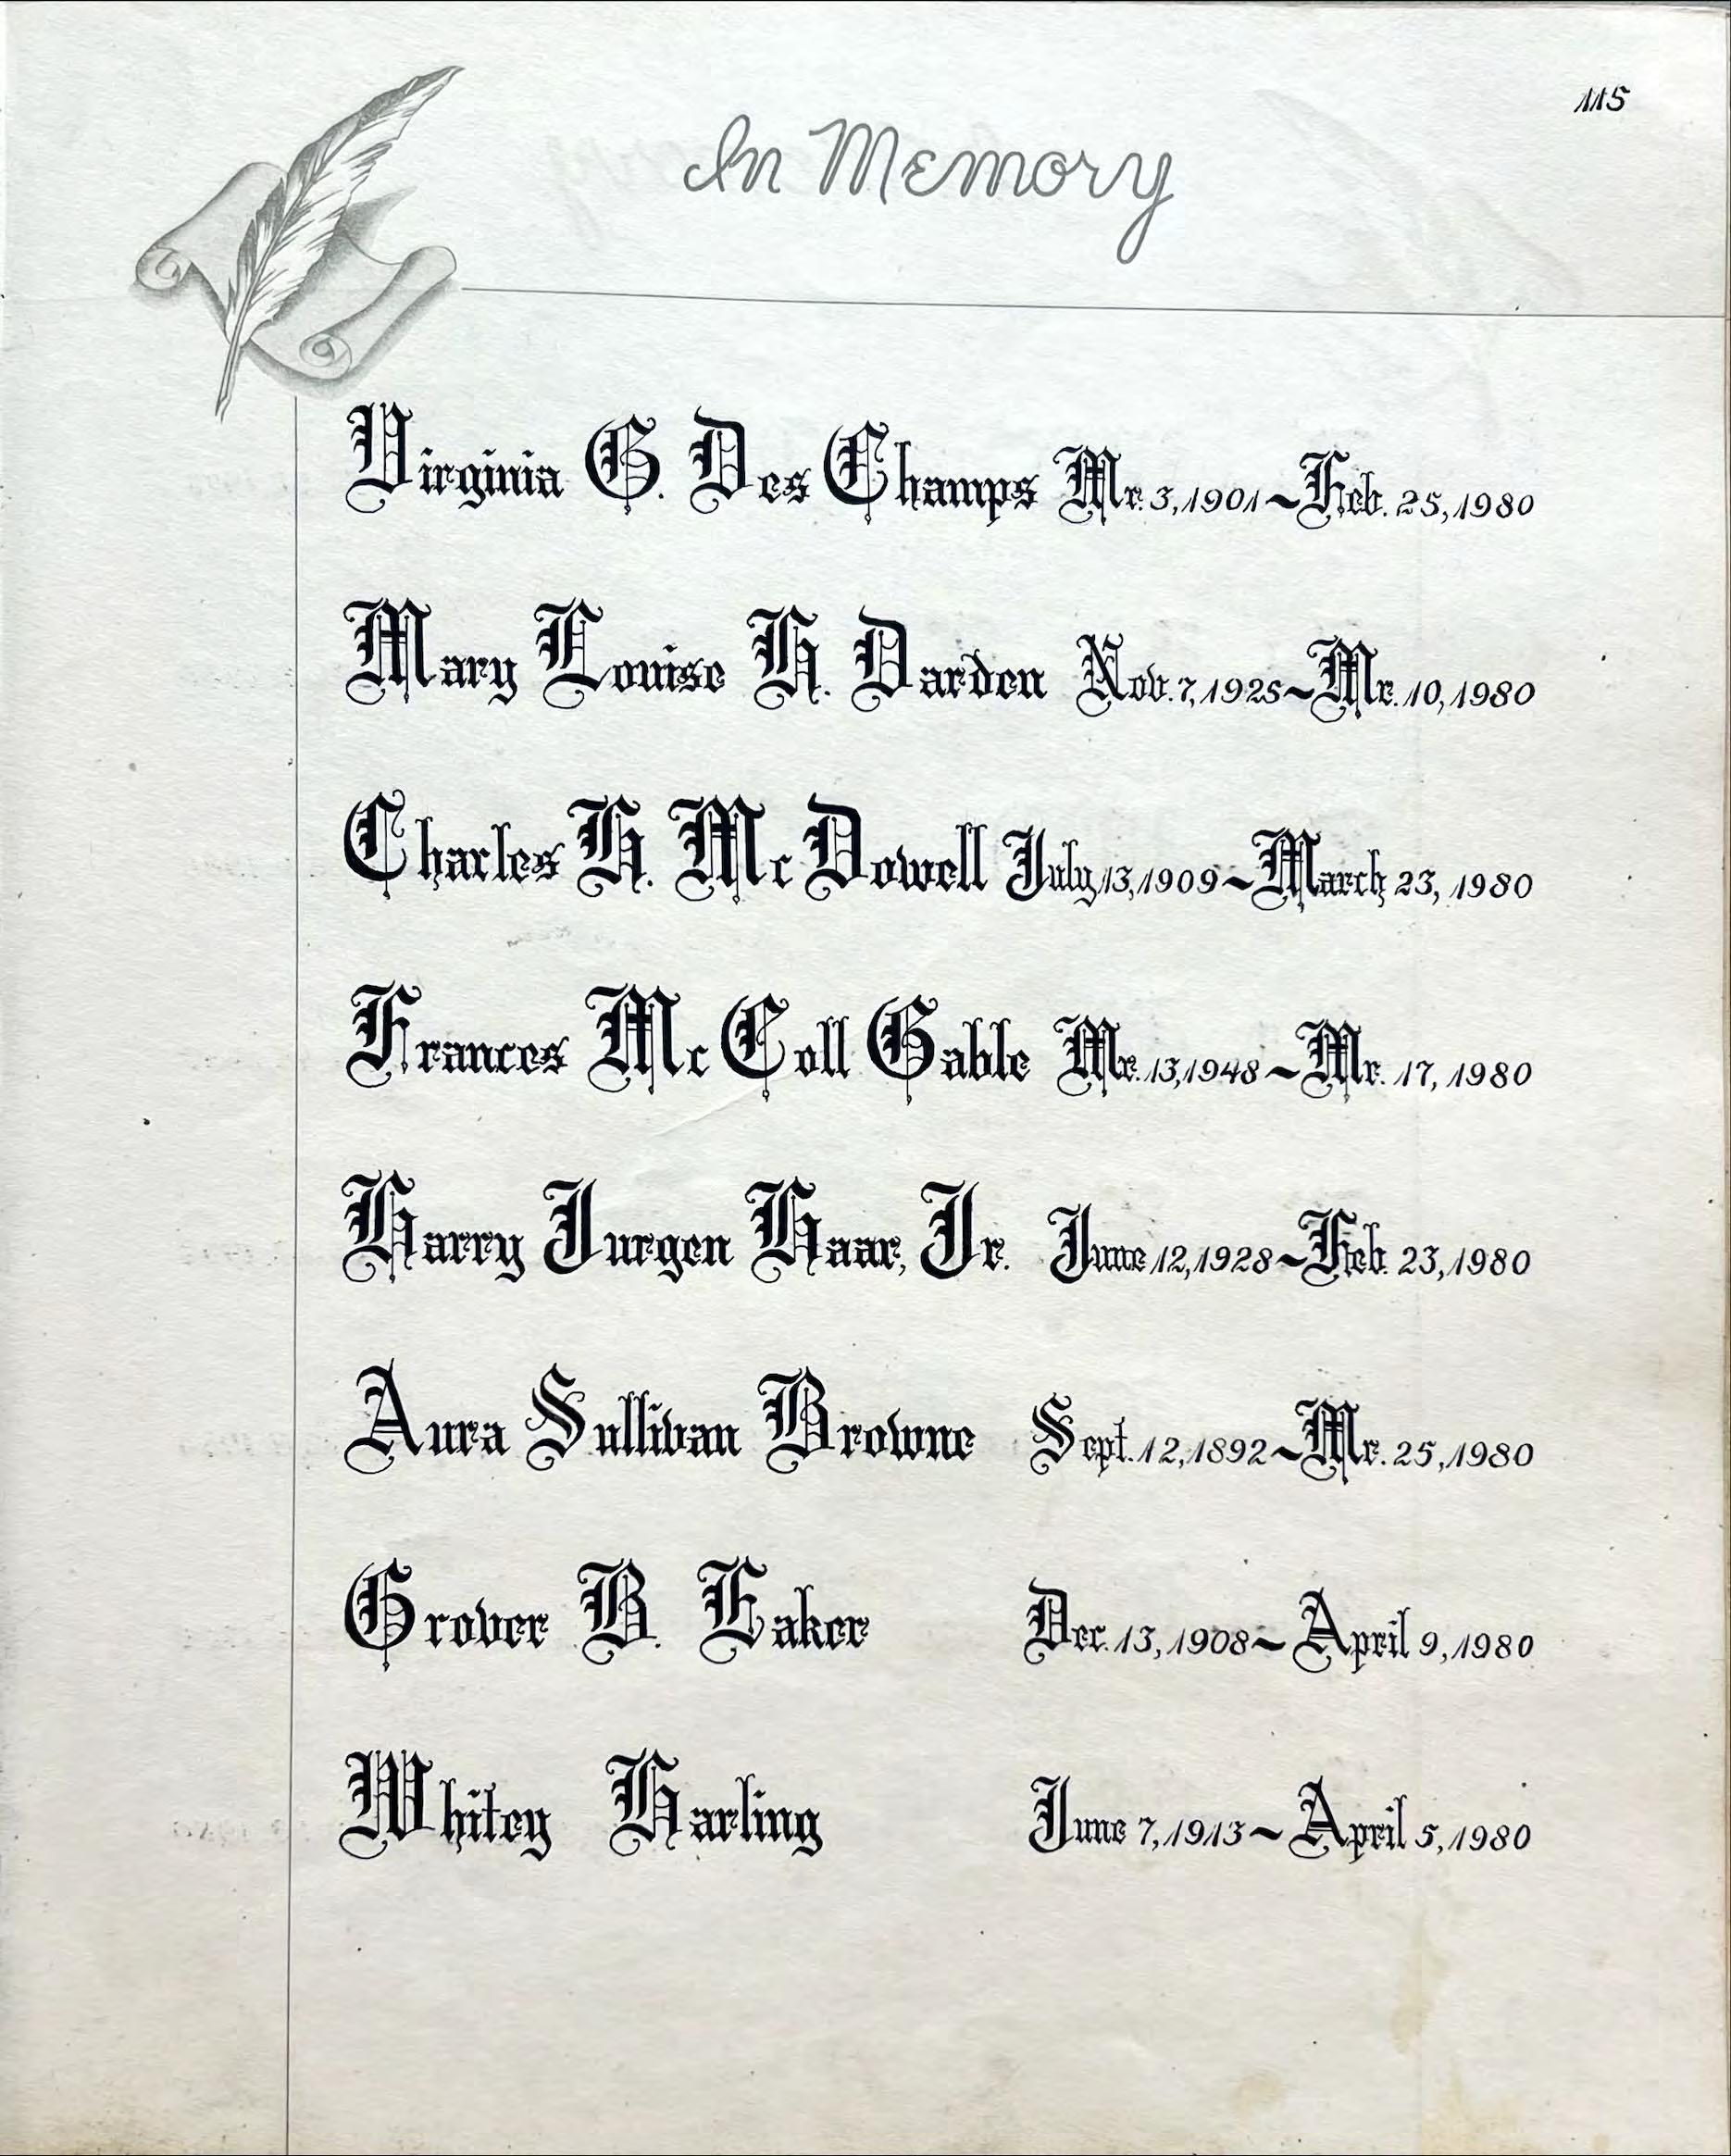 115
In Memory
Virginia G. Des Champs Mr. 3, 1901 ~ Feb. 25, 1980
Mary Louise H. Darden Nov. 7, 1925 ~ Mr. 10, 1980
Charles H. Mc Dowell July 13, 1909 ~ March 23, 1980
Frances Mc Coll Gable Mr. 13, 1948 ~ Mr. 17, 1980
Harry Jurgen Haar, Jr. June 12, 1928 ~ Feb. 23, 1980
Aura Sullivan Browne Sept. 12, 1892 ~ Mr. 25, 1980
Grover B. Eaker Dec. 13, 1908 ~ April 9, 1980
Whitey Harling June 7, 1913 ~ April 5, 1980